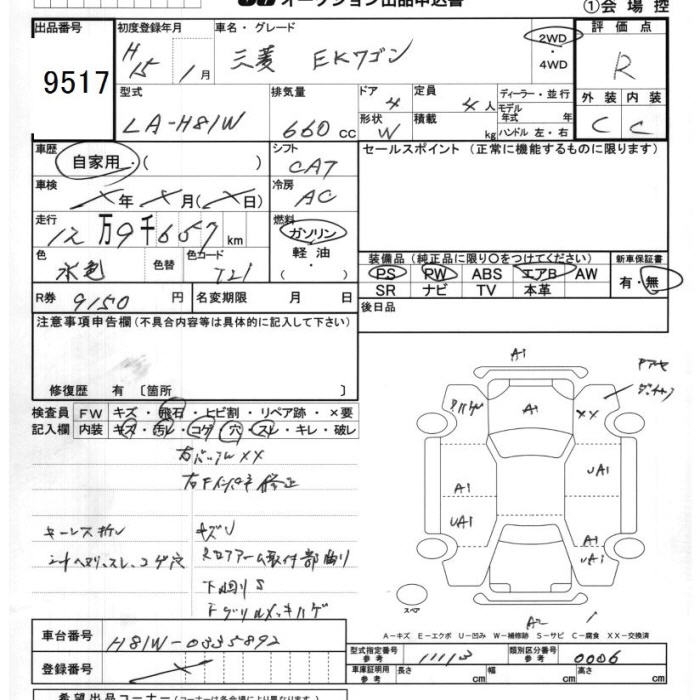 ①会場控
出品番号
9517
初度登録年月
H15年 1月
車名・グレード
三菱 EKワゴン
2WD
・
4WD
評価点
R
外装 内装
C C
型式
LA-H81W
排気量
660 cc
ドア 4
形状 W
定員 4人
積載 kg
ディーラー・並行
モデル年式 年式
ハンドル 左・右
車歴
自家用・( )
シフト
CAT
車検
年 月( 日)
冷房
AC
走行
12万9千657 km
燃料
ガソリン
軽油
・( )
色
水色
色替
色コード
T21
R券 9150 円
名変期限 月 日
セールスポイント (正常に機能するものに限ります)
装備品 (純正品に限り○をつけてください)
PS PW ABS エアB AW
SR ナビ TV 本革
新車保証書
有・無
後日品
注意事項申告欄(不具合内容等は具体的に記入して下さい)
修復歴 有 〔箇所 〕
検査員
記入欄
FW キズ・飛石・ヒビ割・リペア跡・×要
内装 キズ・汚レ・コゲ・穴・スレ・キレ・破レ
キーレス
キズU
下廻りS
A1
A1
XX
UA1
A1
UA1
A1
UA1
スペア
A-キズ E-エクボ U-凹み W-補修跡 S-サビ C-腐食 XX-交換済
車台番号 H81W-0335892
登録番号
型式指定番号
参考 11113
類別区分番号
参考 0006
車庫証明用
参考 長さ cm 幅 cm 高さ cm
希望出品コーナー